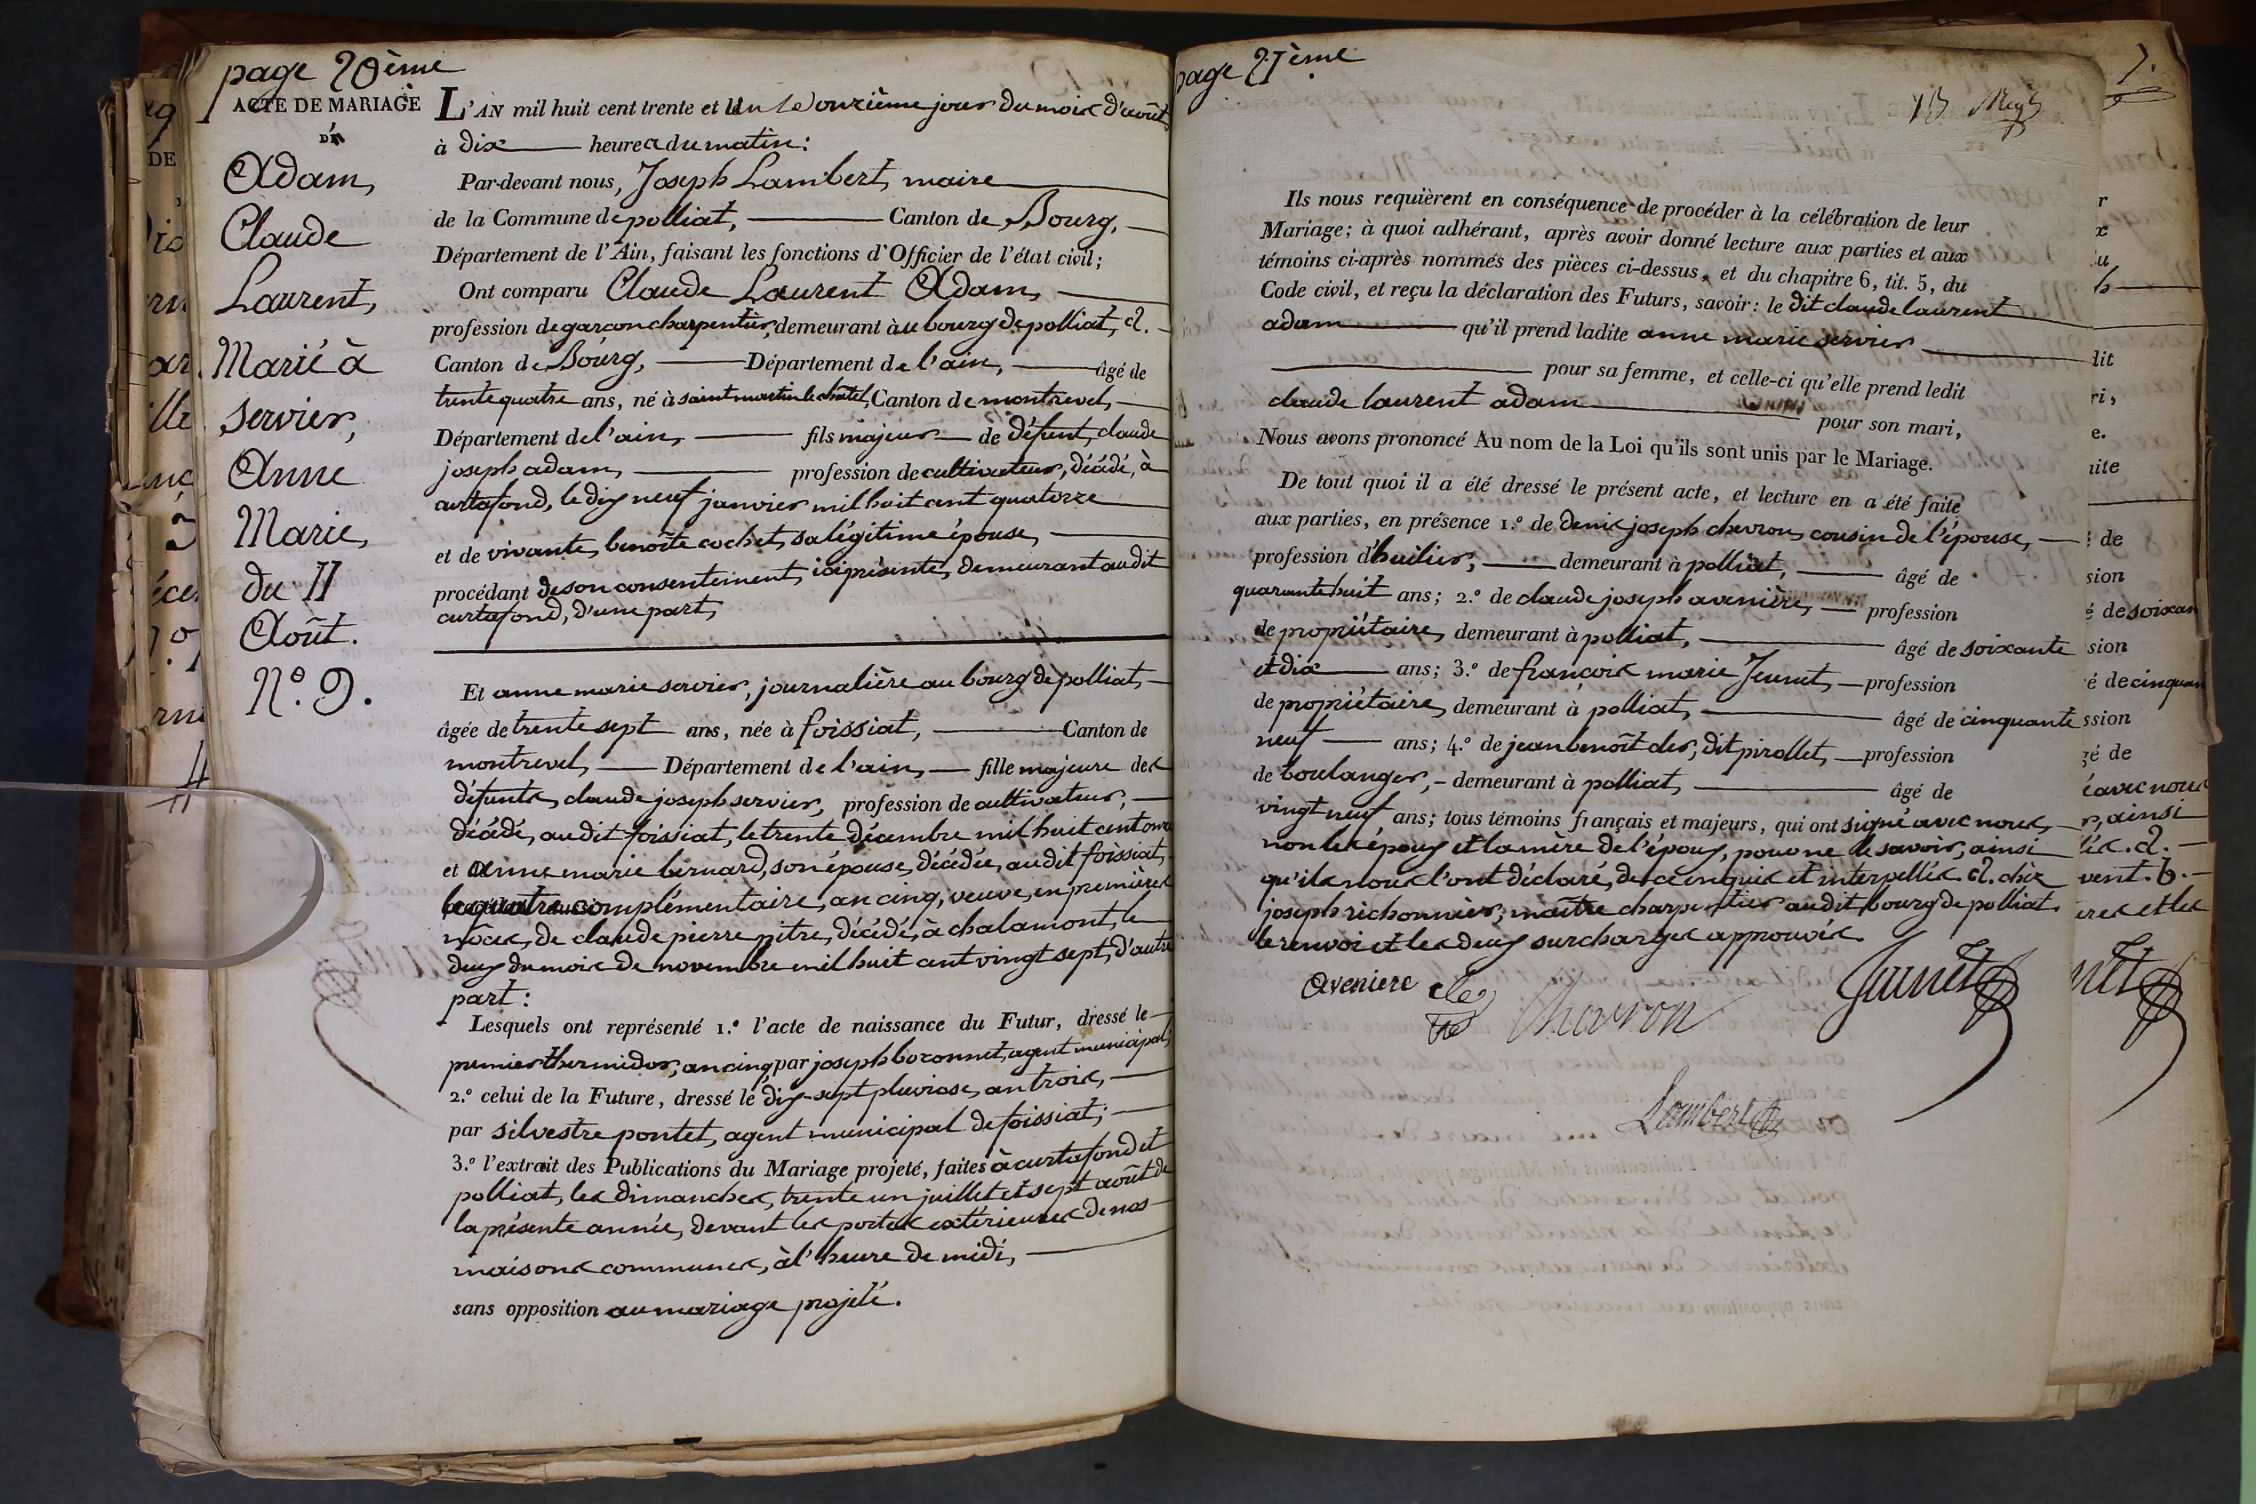 page 20ème
ACTE DE MARIAGE
D'n
Adam,
Claude
Laurent,
Marié à
servier,
Anne
Marie,
du 11
Août.
N.º 9.
L'AN mil huit cent trente et un le onzième jour du mois d'août
à dix heures du matin:
Par-devant nous, Joseph Lambert, maire
de la Commune de polliat, Canton de Bourg,
Département de l'Ain, faisant les fonctions d'Officier de l'état civil;
Ont comparu Claude Laurent Adam,
profession de garçon charpentier, demeurant à au bourg de polliat, a.
Canton de Bourg, Département de l'ain, âgé de
trente quatre ans, né à saint martin le châtel, Canton de montrevel,
Département de l'ain, fils majeur de défunt, claude
joseph adam, profession de cultivateur, décédé, à
curtafond, le dix neuf janvier mil huit cent quatorze
et de vivante, benoîte cochet, sa légitime épouse,
procédant de son consentement, ici présente, demeurant audit
curtafond, d'une part,
Et anne marie servier, journalière au bourg de polliat,
âgée de trente sept ans, née à foissiat, Canton de
montrevel, Département de l'ain, fille majeure des
défunts, claude joseph servier, profession de cultivateur,
décédé, audit foissiat, le trente décembre mil huit cent onze
et anne marie bernard, son épouse, décédée, audit foissiat,
le quatre complémentaire, an cinq, veuve, en premières
nôces, de claude pierre pitre, décédé, à chalamont, le
deux du mois de novembre mil huit cent vingt sept, d'autre
part:
Lesquels ont représenté 1.º l'acte de naissance du Futur, dressé le
premier thermidor, an cinq, par joseph boronnet, agent municipal,
2.º celui de la Future, dressé le dix-sept pluviose, an trois,
par silvestre pontet, agent municipal de foissiat;
3.º l'extrait des Publications du Mariage projeté, faites à curtafond et
polliat, les dimanches, trente un juillet et sept août de
la présente année, devant les portes extérieures de nos
maisons communes, à l'heure de midi,
sans opposition au mariage projeté.
page 21ème
Ils nous requièrent en conséquence de procéder à la célébration de leur
Mariage; à quoi adhérant, après avoir donné lecture aux parties et aux
témoins ci-après nommés des pièces ci-dessus, et du chapitre 6, tit. 5, du
Code civil, et reçu la déclaration des Futurs, savoir: le dit claude laurent
adam qu'il prend ladite anne marie servier
pour sa femme, et celle-ci qu'elle prend ledit
claude laurent adam
pour son mari,
Nous avons prononcé Au nom de la Loi qu'ils sont unis par le Mariage.
De tout quoi il a été dressé le présent acte, et lecture en a été faite
aux parties, en présence 1.º de denis joseph chevron, cousin de l'épouse,
profession d'huilier, demeurant à polliat, âgé de
quarante huit ans; 2.º de claude joseph avenière, profession
de propriétaire, demeurant à polliat, âgé de soixante
et dix ans; 3.º de françois marie Jeunet, profession
de propriétaire, demeurant à polliat, âgé de cinquante
neuf ans; 4.º de jean benoît cler, dit pirollet, profession
de boulanger, demeurant à polliat, âgé de
vingt neuf ans; tous témoins français et majeurs, qui ont signé avec nous,
non les époux et la mère de l'époux, pour ne le savoir, ainsi
qu'ils nous l'ont déclaré, de ce enquis et interpellés. a. chez
joseph richonnier, maître charpentier audit bourg de polliat.
le renvoi et les deux surcharges approuvés.
Aveniere
Chevron
Jeunet
Lambert